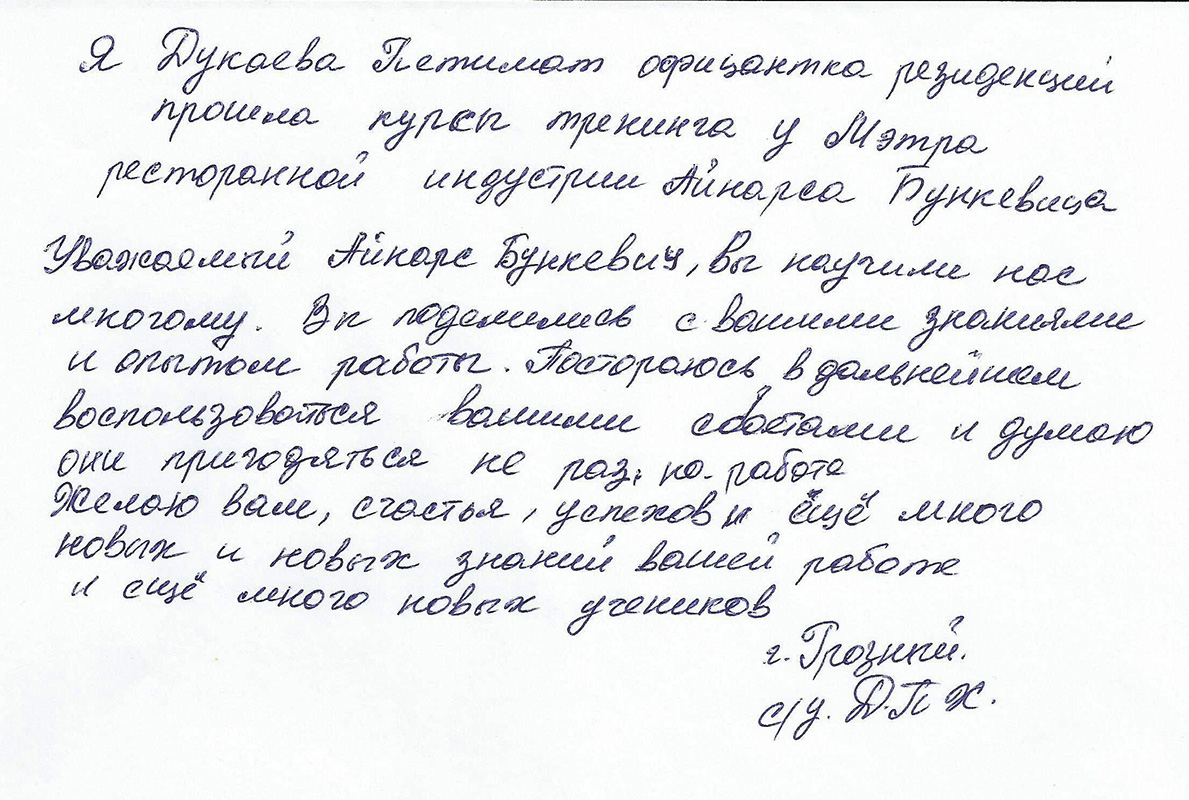 Я Дукаева Петимат официантка резиденций
прошла курсы тренинга у Мэтра
ресторанной индустрии Айнарса Бункевица
Уважаемый Айнарс Бункевиц, вы научили нас
многому. Вы поделились с вашими знаниями
и опытом работы. Постораюсь в дальнейшем
воспользоваться вашими советами и думаю
они пригодяться не раз, на работе
Желаю вам, счастья, успехов и ещё много
новых и новых знаний вашей работе
и ещё много новых учеников
г. Грозный.
с/у. Д.П Х.